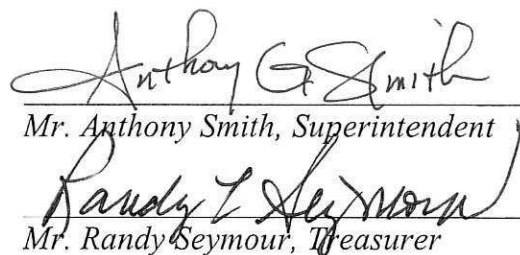 Anthony G. Smith
Mr. Anthony Smith, Superintendent
Randy L Seymour
Mr. Randy Seymour, Treasurer